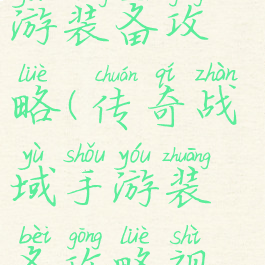 游装备攻
lüè chuán qí zhàn
略(传奇战
yù shǒu yóu zhuāng
域手游装
bèi gōng lüè shì
备攻略视